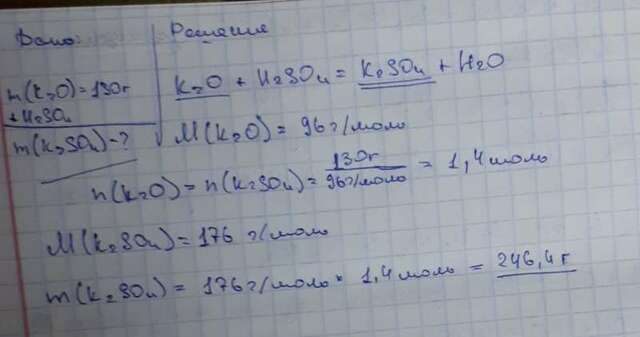 Дано
Решение
m(K2O)=130г
+H2SO4
m(K2SO4)-?
K2O + H2SO4 = K2SO4 + H2O
M(K2O) = 96 г/моль
n(K2O) = n(K2SO4) = 130г / 96г/моль = 1,4 моль
M(K2SO4) = 176 г/моль
m(K2SO4) = 176 г/моль * 1,4 моль = 246,4 г